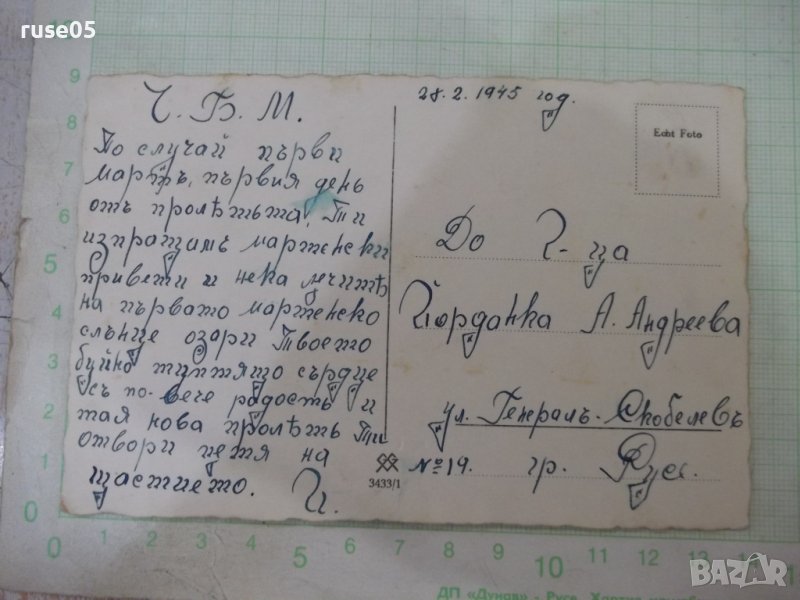 ruse05
Ч. Б. М.
По случай първи
мартъ, първия день
отъ пролѣтьта, Ти
изпращамъ мартенски
привети и нека лѫчитѣ
на първото мартенско
слънце озари Твоето
буйно туптящо сърдце
съ по-вече радость и
тая нова пролѣть Ти
отвори петя на
щастието. Й.
28.2.1945 год.
Echt Foto
До Г-ца
Йорданка А. Андреева
ул. Генералъ-Скобелевъ
№ 19. гр. Русе.
3433/1
9
8
7
6
5
4
3
2
1
0
0 1 2 3 4 5 6 7 8 9 10 11 12 13 14 15
ДП «Дунав» - Русе.
BAZAR